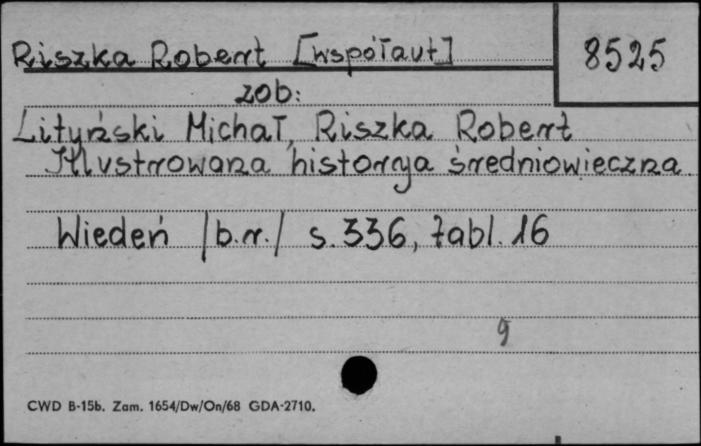 Riszka Robert [współaut]
8525
zob:
Lityński Michał, Riszka Robert
Illustrowana historya średniowieczna
Wiedeń /b.r./ s. 336, tabl. 16
g
CWD B-15b. Zam. 1654/Dw/On/68 GDA-2710.